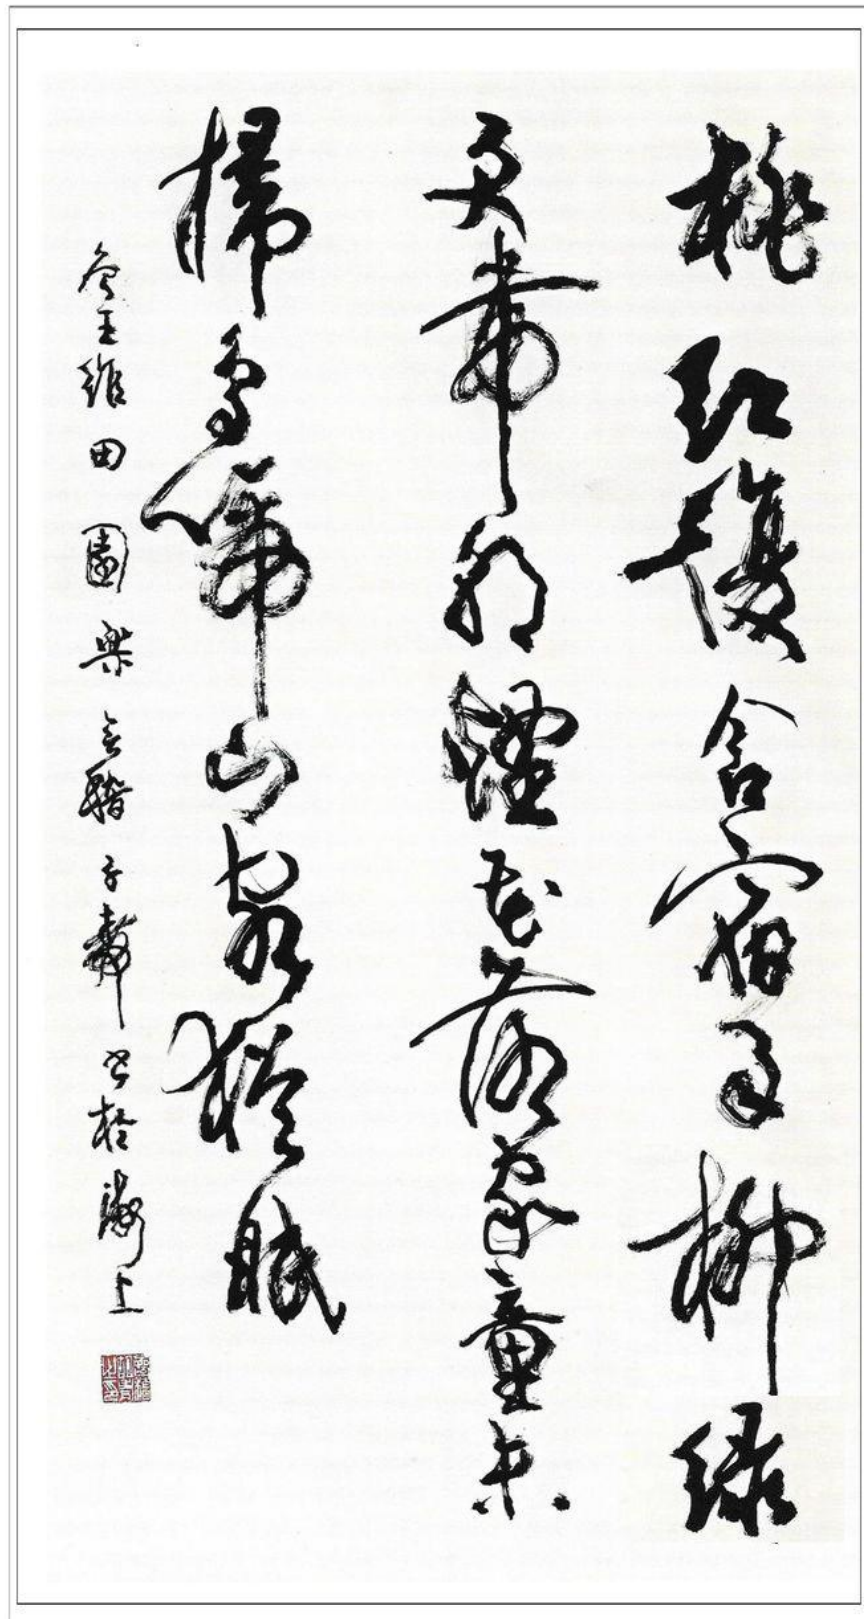 桃紅復含宿雨柳綠
更帶朝煙花落家童未
掃鳥啼山客猶眠
王維田園樂 書於 上